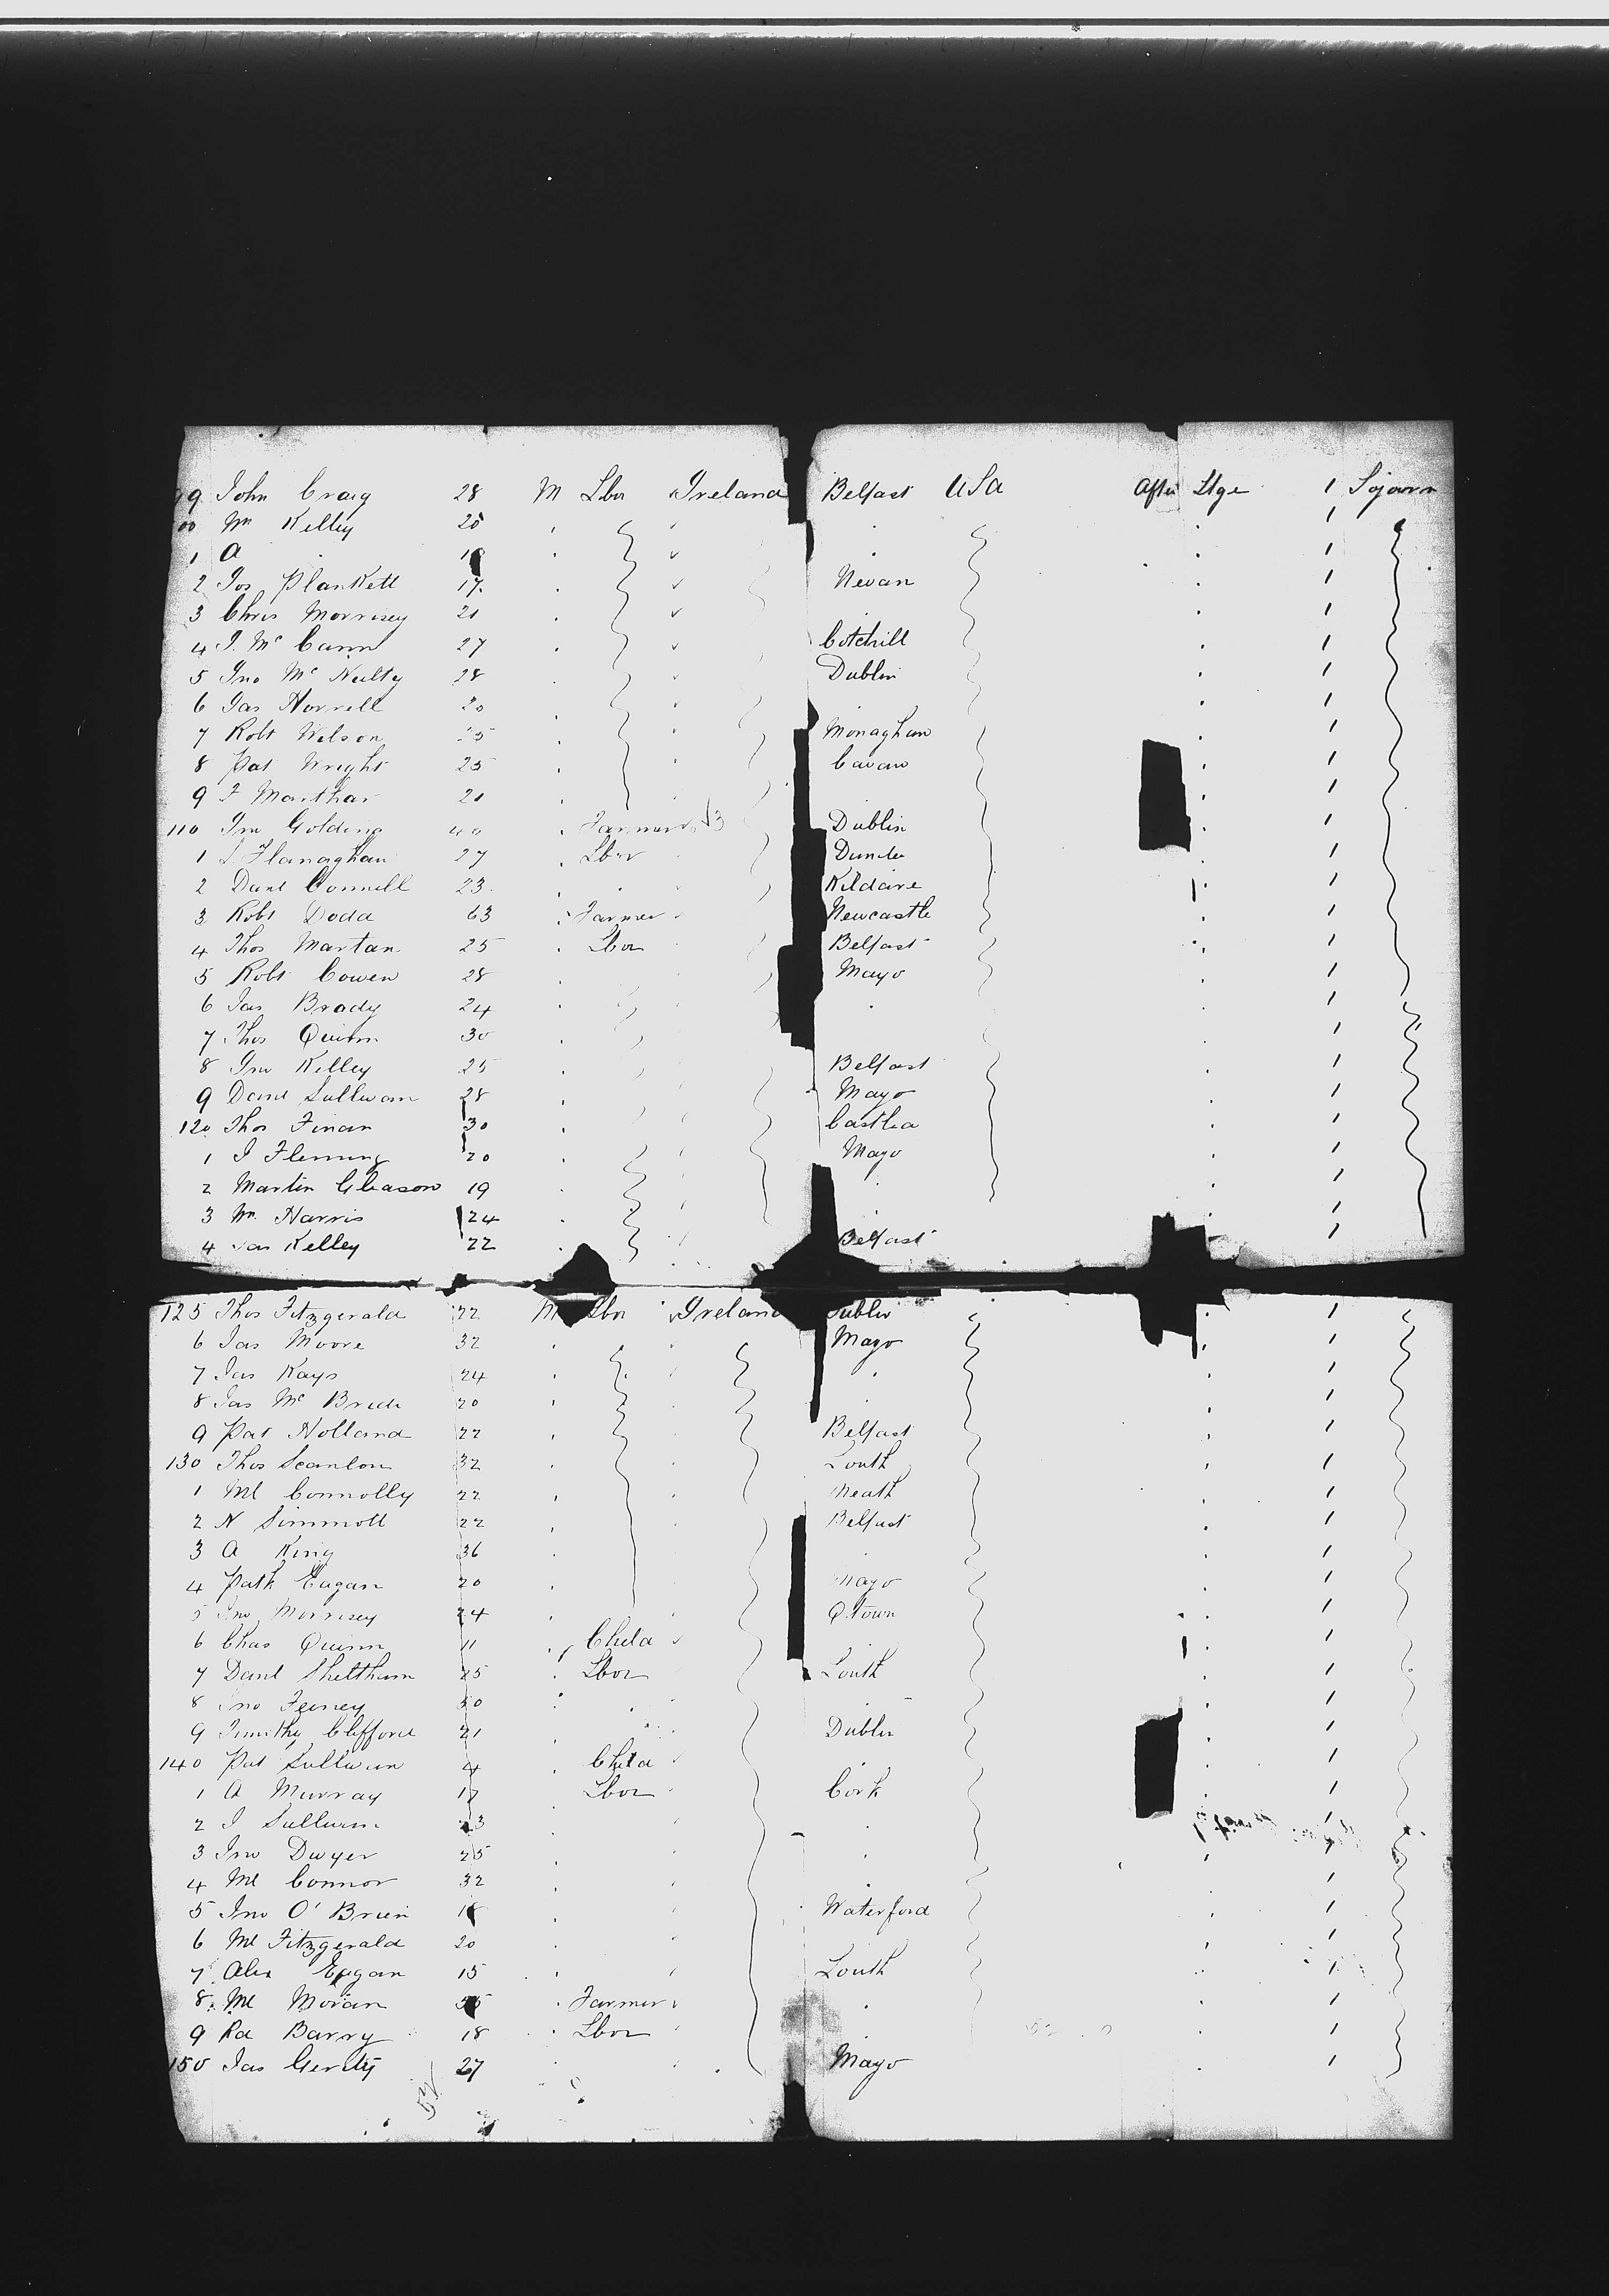 99 John Craig 28 M Lbr Ireland Belfast USA After Stge 1 Sojourn
00 Wm Kelley 20 1
1 A 1
2 Jos Plankett 17 Nevan 1
3 Chris Morrisey 21 1
4 J. Mc Cann 27 Cotehill 1
5 Jno Mc Nulty 28 Dublin 1
6 Jas Horrell 20 1
7 Robt Wilson 25 Monaghan 1
8 Pat Wright 25 Cavan 1
9 J Marthar 20 1
110 Jno Golding 40 Farmer Dublin 1
1 Flanaghan 27 Lbor 1
2 Danl Connell 23 Kildare 1
3 Robt Dodd 63 Farmer Newcastle 1
4 Thos Martan 25 Lbor Belfast 1
5 Robt Cowen 28 Mayo 1
6 Jas Brady 24 1
7 Thos Quinn 30 1
8 Jno Kelley 25 Belfast 1
9 Danl Sullivan 28 Mayo 1
120 Thos Finan 30 Castlea 1
1 J Fleming 20 Mayo 1
2 Martin Gleason 19 1
3 Wm Harris 24 1
4 Jas Kelley 22 Belfast 1
125 Thos Fitzgerald 22 M Lbr Ireland Dublin 1
6 Jas Moore 32 Mayo 1
7 Jas Kays 24 1
8 Jas Mc Bride 20 1
9 Pat Holland 22 Belfast 1
130 Thos Scanlon 32 Louth 1
1 Ml Connolly 22 Meath 1
2 N Simmott 22 Belfast 1
3 A King 36 1
4 Patk Eagan 20 Mayo 1
5 Jno Morrisey 24 Q.town 1
6 Chas Quinn 11 Child 1
7 Danl Sheltham 25 Lbor Louth 1
8 Jno Feeney 30 1
9 Timithy Clifford 21 Dublin 1
140 Pat Sullivan 4 Child 1
1 A Murray 17 Lbor Cork 1
2 J Sullivan 23 1
3 Jno Dwyer 25 1
4 Ml Connor 32 1
5 Jno O' Brien 18 Waterford 1
6 Ml Fitzgerald 20 1
7 Alex Eagan 15 Louth 1
8 Ml Moran Farmer 1
9 Rd Barry 18 Lbor 1
150 Jas Gerity 27 Mayo 1